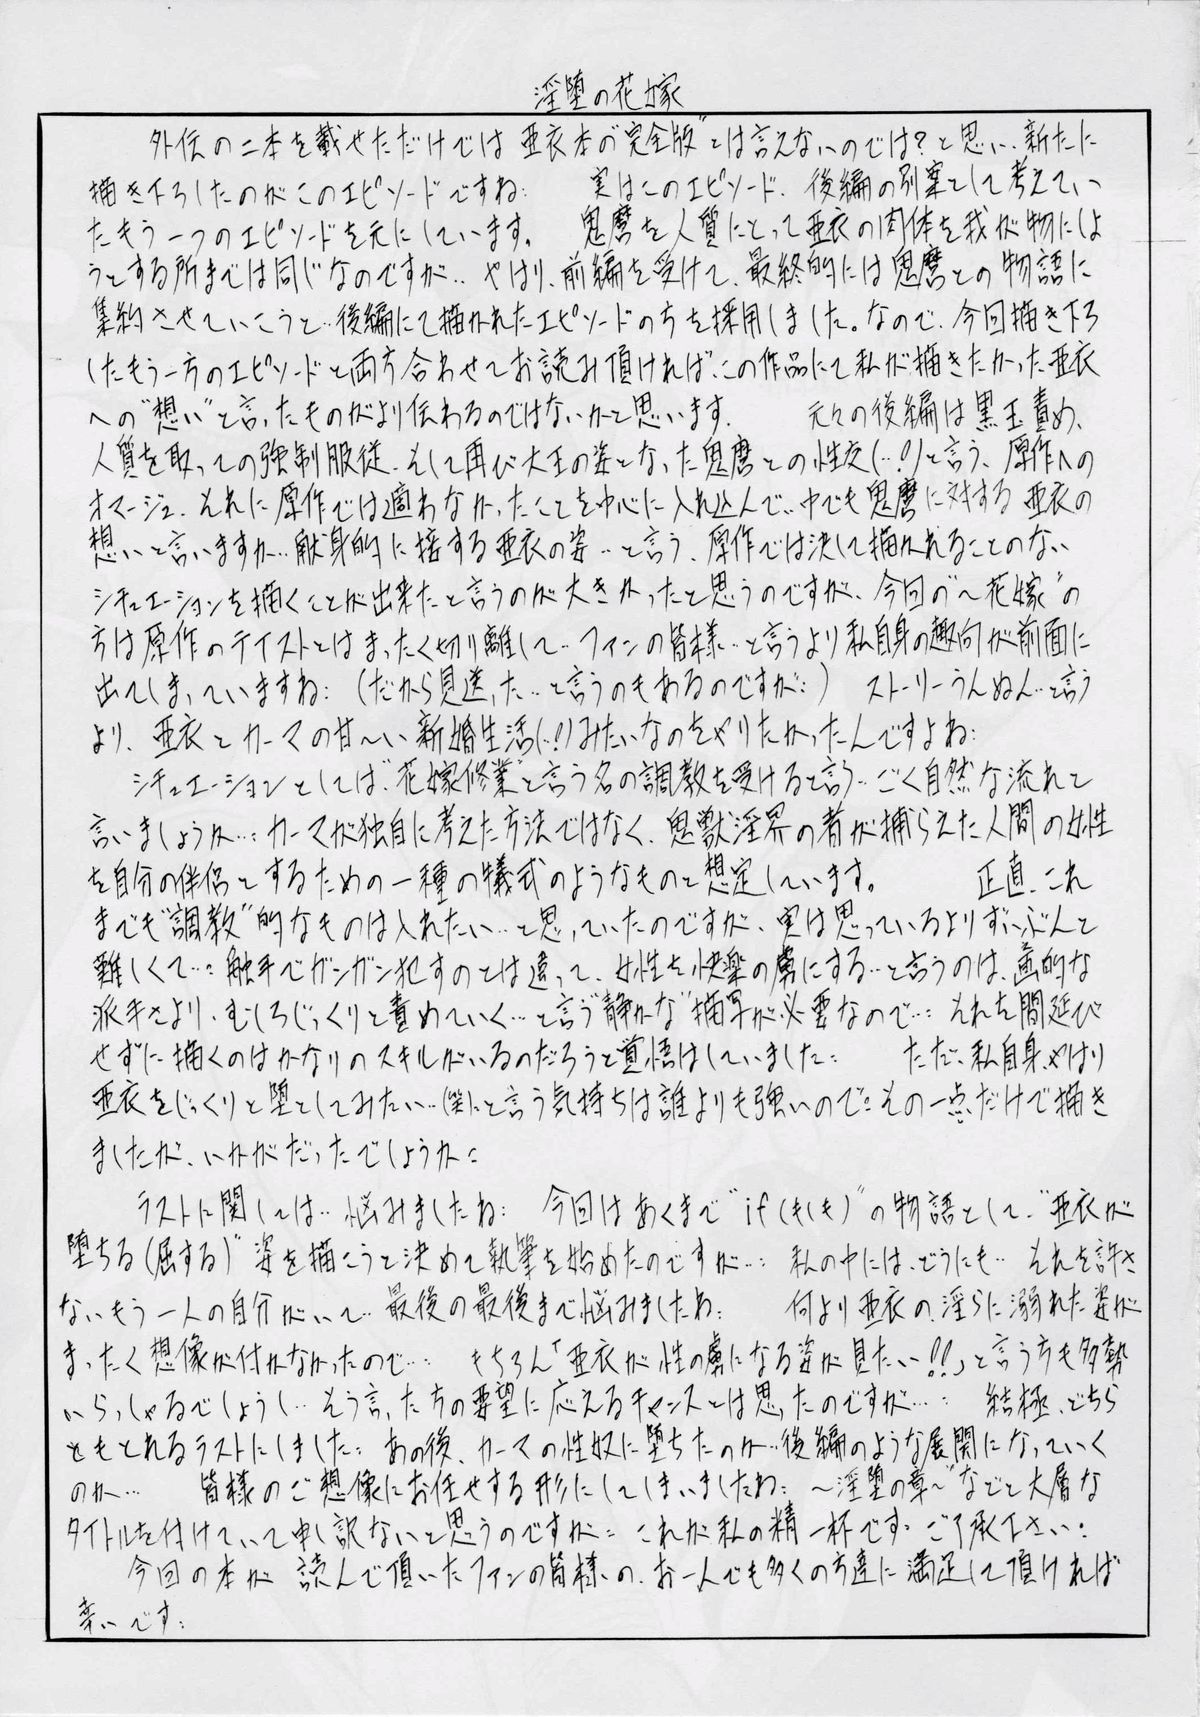 淫堕の花嫁
外伝の二本を載せただけでは 亜衣本の"完全版"とは言えないのでは?と思い、新たに
描き下ろしたのがこのエピソードですね… 実はこのエピソード、後編の別案として考えてい
たもう一つのエピソードを元にしています。 鬼麿を人質にとって亜衣の肉体を我が物にしよ
うとする所までは同じなのですが… やはり、前編を受けて、最終的には鬼麿との物語に
集約させていこうと…後編にて描かれたエピソードの方を採用しました。なので、今回描き下ろ
したもう一方のエピソードと両方合わせてお読み頂ければ、この作品にて私が描きたかった亜衣
への"想い"と言ったものがより伝わるのではないかと思います。 元々の後編は黒玉責め、
人質を取っての強制服従、そして再び大王の姿となった鬼麿との性交(…!)と言う、原作への
オマージュ、それに原作では適わなかったことを中心に入れ込んで…中でも鬼麿に対する亜衣の
想いと言いますか…献身的に接する亜衣の姿…と言う、原作では決して描かれることのない
シチュエーションを描くことが出来たと言うのが大きかったと思うのですが、今回の"〜花嫁"の
方は原作のテイストとはまったく切り離して…ファンの皆様…と言うより私自身の趣向が前面に
出てしまっていますね… (だから見送った…と言うのもあるのですが…) ストーリーうんぬん…と言う
より、亜衣とカーマの甘〜い新婚生活(…!)みたいなのをやりたかったんですよね…
シチュエーションとしては"花嫁修業"と言う名の調教を受けると言う…ごく自然な流れと
言いましょうか…カーマが独自に考えた方法ではなく、鬼獣淫界の者が捕らえた人間の女性
を自分の伴侶とするための一種の儀式のようなものと想定しています。 正直、これ
までも"調教"的なものは入れたい…と思っていたのですが、実は思っているよりずいぶんと
難しくて…触手でガンガン犯すのとは違って、女性を快楽の虜にする…と言うのは、画的な
派手さより、むしろじっくりと責めていく…と言う"静かな"描写が必要なので…それを間延び
せずに描くのはかなりのスキルがいるのだろうと覚悟はしていました… ただ、私自身、やはり
亜衣をじっくりと堕としてみたい…(笑)と言う気持ちは誰よりも強いので…その一点だけで描き
ましたが、いかがだったでしょうか…
ラストに関しては…悩みましたね… 今回はあくまで"if(もしも)"の物語として、"亜衣が
堕ちる(屈する)"姿を描こうと決めて執筆を始めたのですが… 私の中には、どうにも…それを許さ
ないもう一人の自分がいて…最後の最後まで悩みましたね… 何より亜衣の、淫らに溺れた姿が
まったく想像が付かなかったので… もちろん「亜衣が性の虜になる姿が見たい!!」と言う方も多勢
いらっしゃるでしょうし…そう言った方の要望に応えるチャンスとは思ったのですが… 結極、どちら
ともとれるラストにしました… あの後、カーマの性奴に堕ちたのか…後編のような展開になっていく
のか… 皆様のご想像にお任せする形にしてしまいましたね… 〜淫堕の章〜"などと大層な
タイトルを付けていて申し訳ないと思うのですが… これが私の精一杯です… ご了承下さい…
今回の本が 読んで頂いたファンの皆様の、お一人でも多くの方達に満足して頂ければ
幸いです…